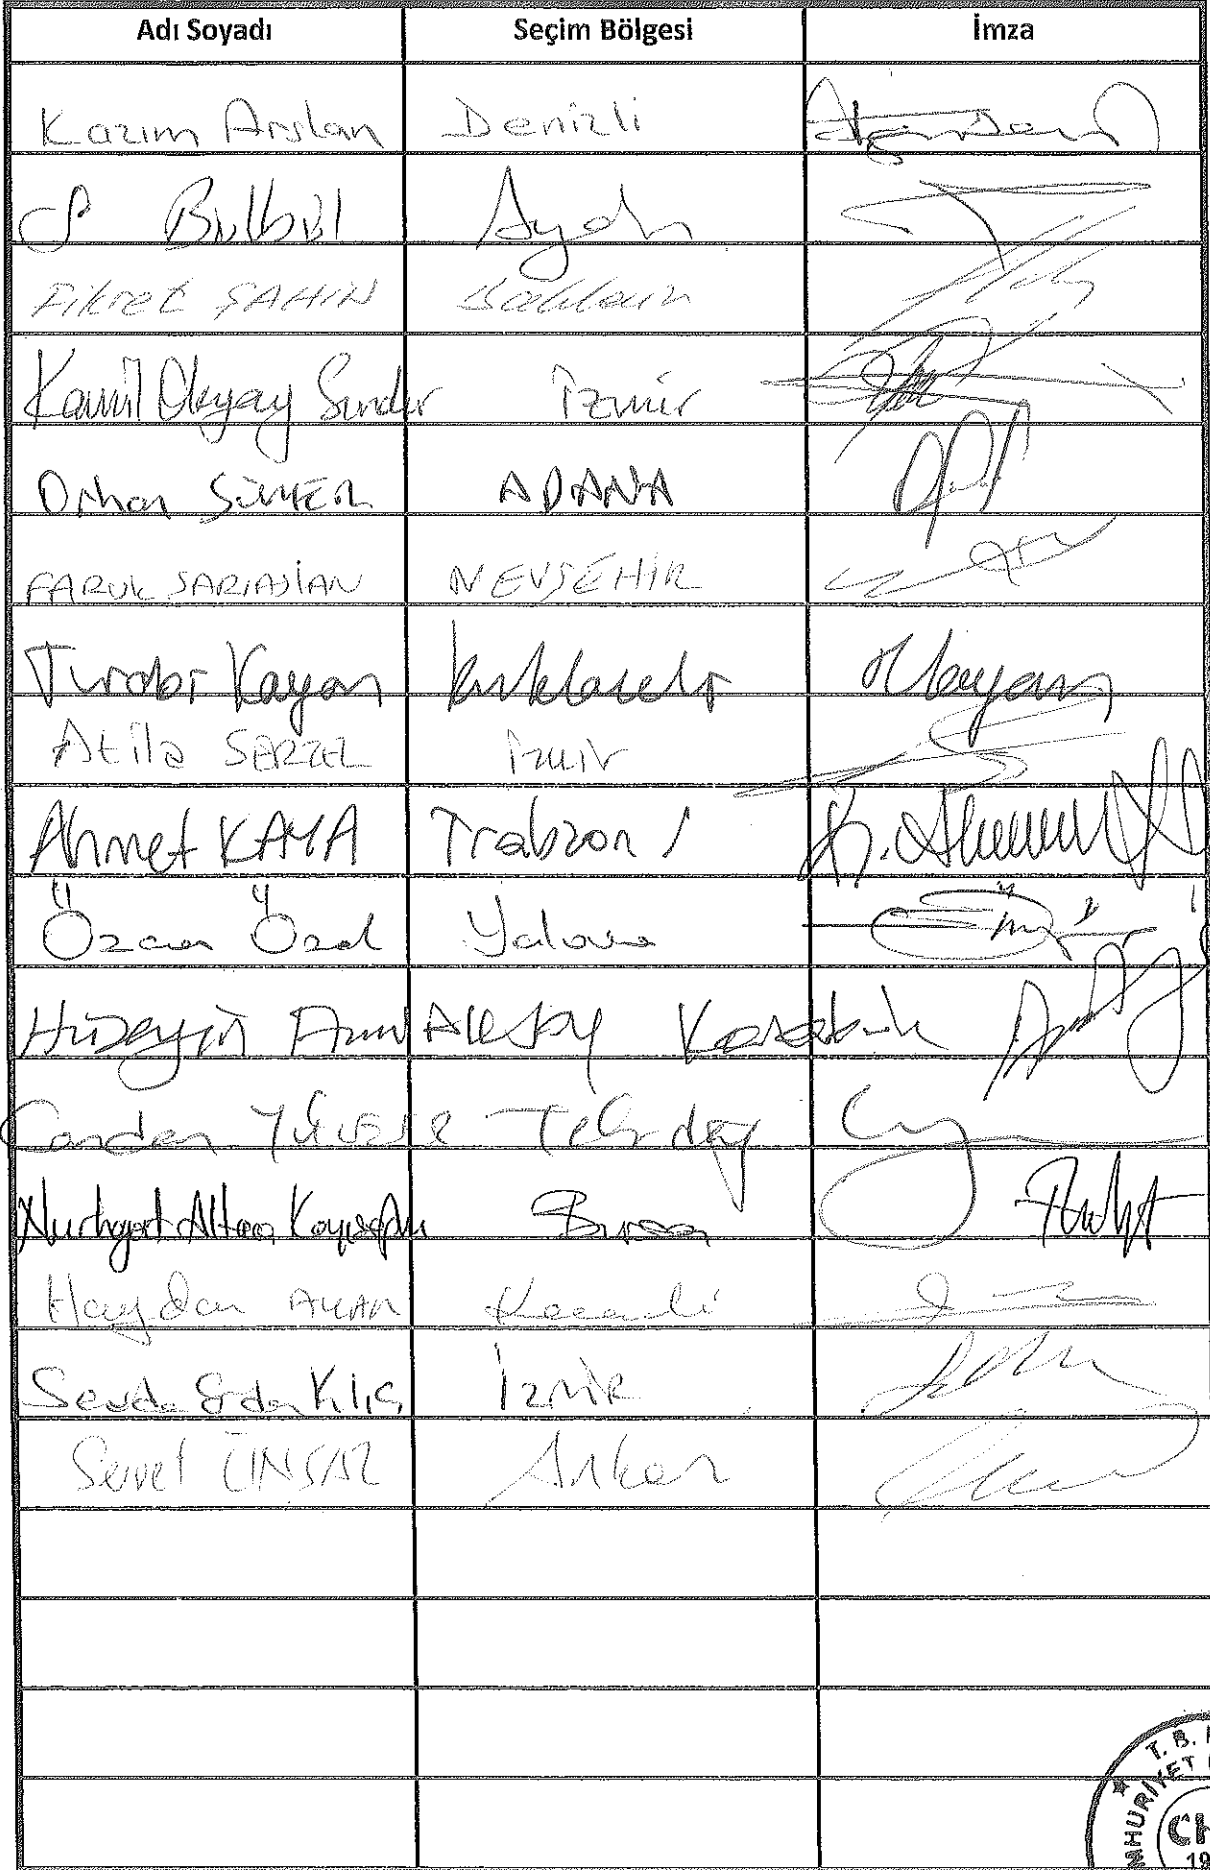 Adı Soyadı Seçim Bölgesi İmza
Kazım Arslan Denizli
Bülbül Aydın
Fikret ŞAHİN Balıkesir
Kamil Okyay Sındır İzmir
Orhan SÜMER ADANA
FARUK SARIASLAN NEVŞEHİR
Turabi Kayan Kırklareli Kayan
Atila SERTEL İzmir
Ahmet KAYA Trabzon
Özcan Özel Yalova
Hüseyin Avni Aksoy Karabük
Candan Yüceer Tekirdağ
Nurhayat Altaca Kayışoğlu Bursa
Haydar AKAR Kocaeli
Sevda Erdan Kılıç İzmir
Servet ÜNSAL Ankara
T. B.